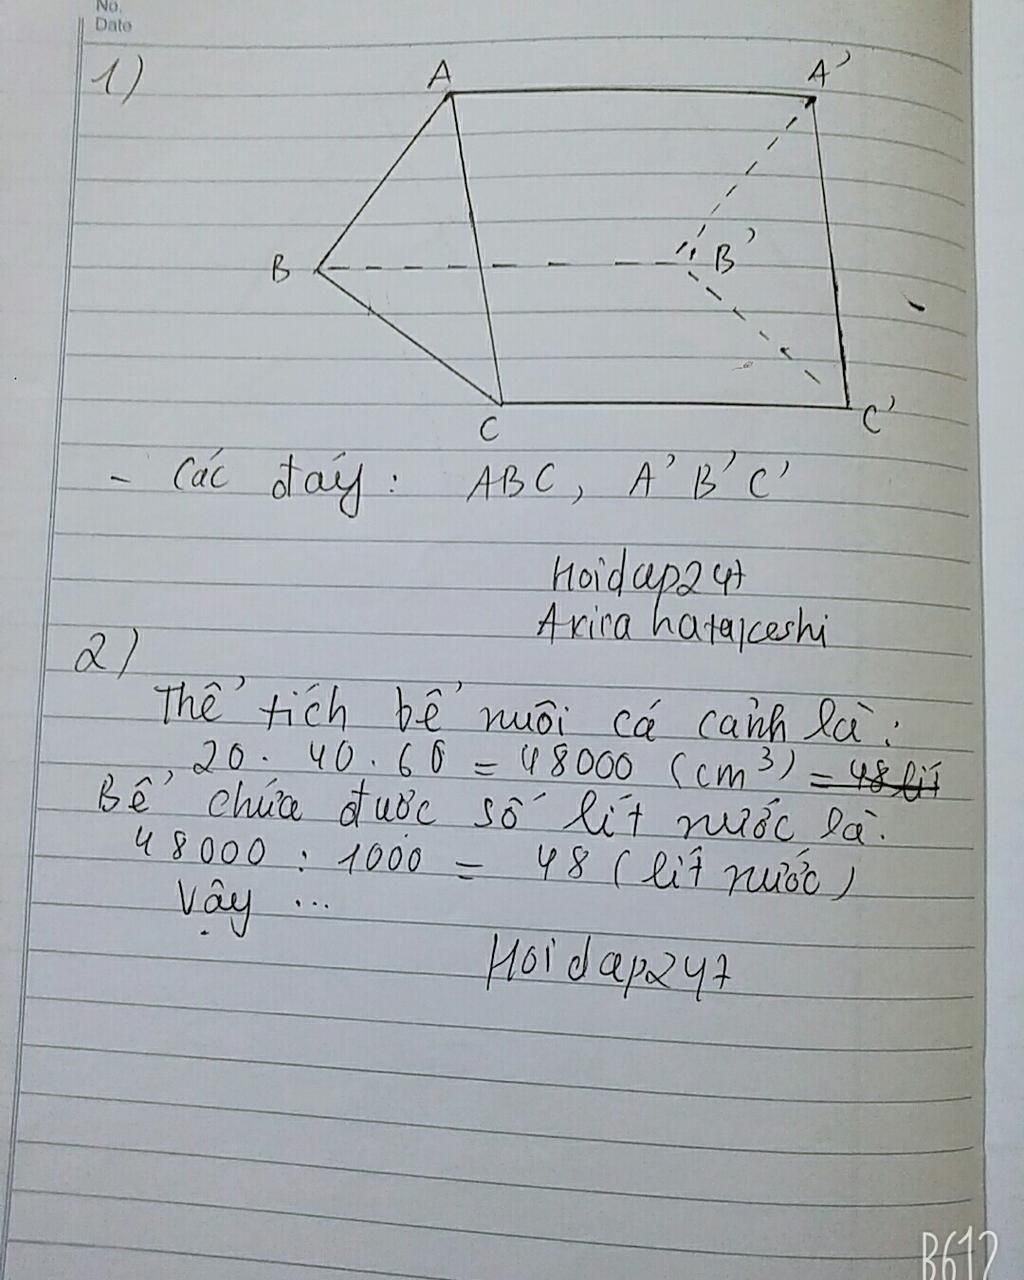 No.
Date
1)
A
A'
B
B'
C
C'
- Các đáy: ABC, A'B'C'
Hoidap247
Akira hatakeshi
2)
Thể tích bể nuôi cá cảnh là:
20. 40. 60 = 48000 (cm³) = 48 lít
Bể chứa được số lít nước là.
48000 : 1000 = 48 (lít nước)
Vậy ...
Hoidap247
B612